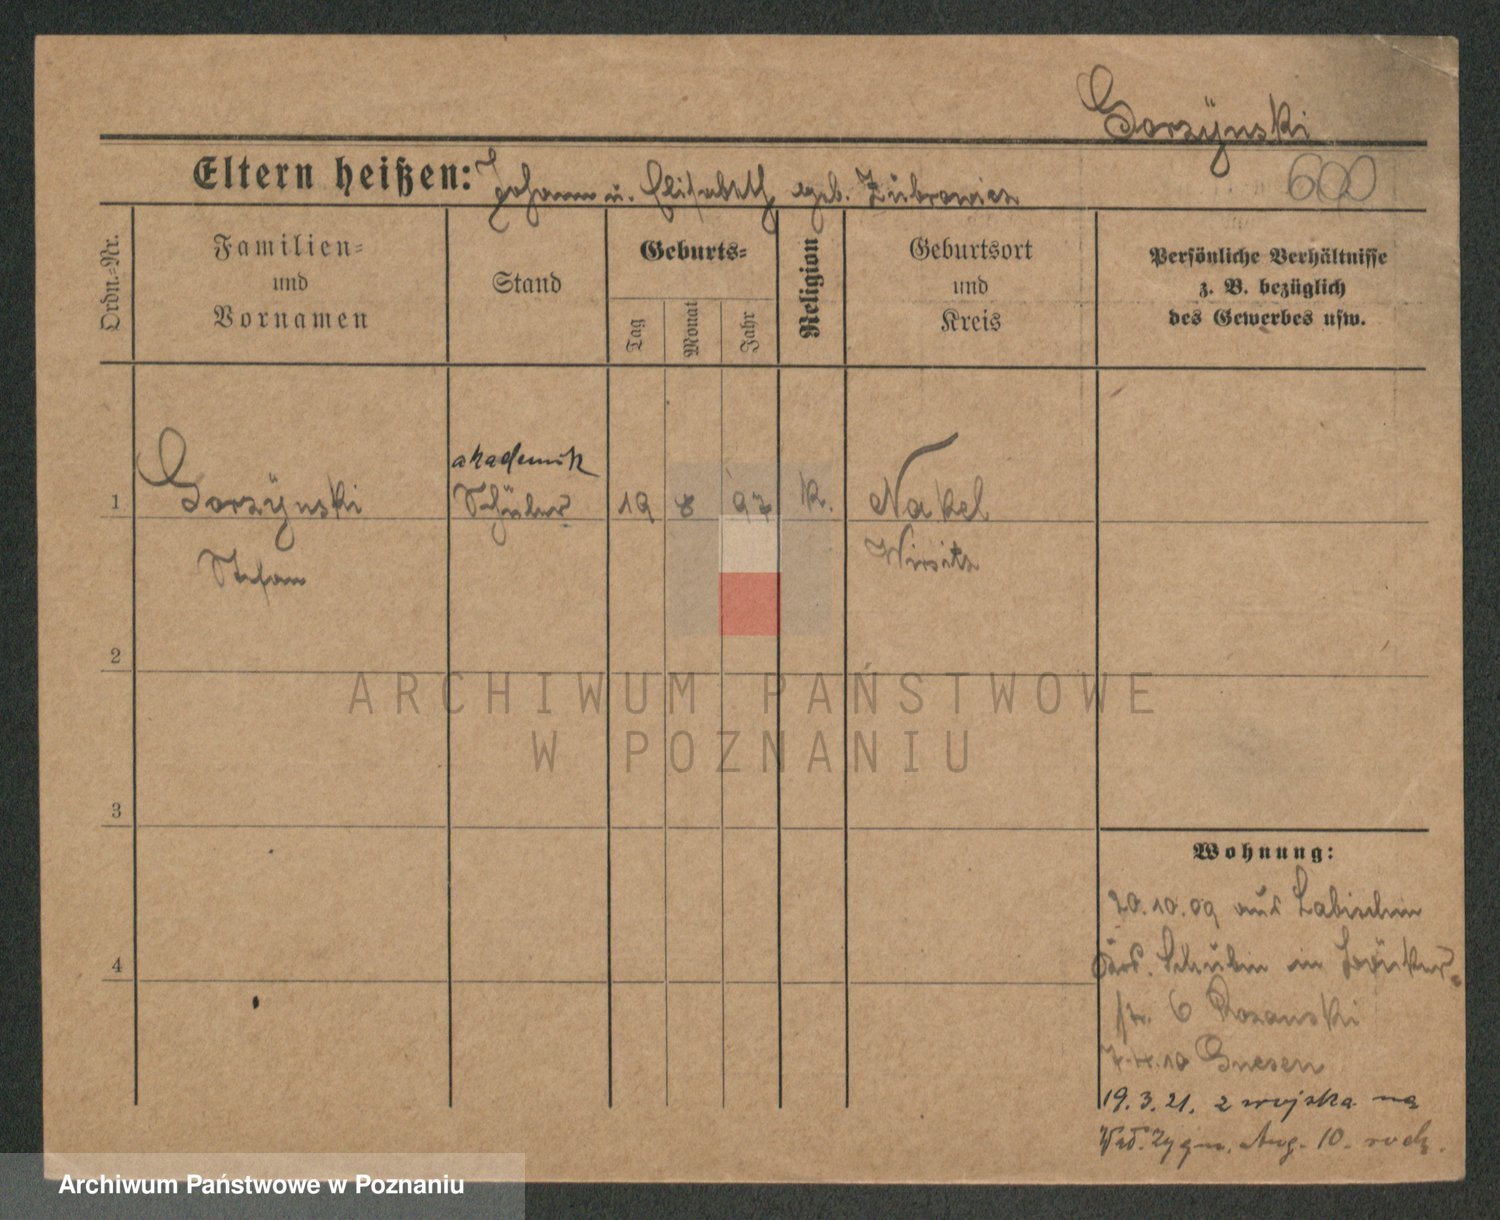 Gorzÿnski
Eltern heißen: Johann u. Elisabeth geb. Zubrowicz
600
Ordn.=Nr.
Familien=
und
Vornamen
Stand
Geburts=
Tag
Monat
Jahr
Religion
Geburtsort
und
Kreis
Persönliche Verhältnisse
z. B. bezüglich
des Gewerbes usw.
akademik
1 Gorzÿnski Schüler 19 8 97 k. Nakel
Stefan Wirsitz
2
ARCHIWUM PAŃSTWOWE
W POZNANIU
3
Wohnung:
20.10.09 aus Labischin
4
Krs. Schubin in
str. 6 Rozanski
7.4.10 Gnesen
19.3.21. z wojska na
Zygm. Aug. 10.
Archiwum Państwowe w Poznaniu